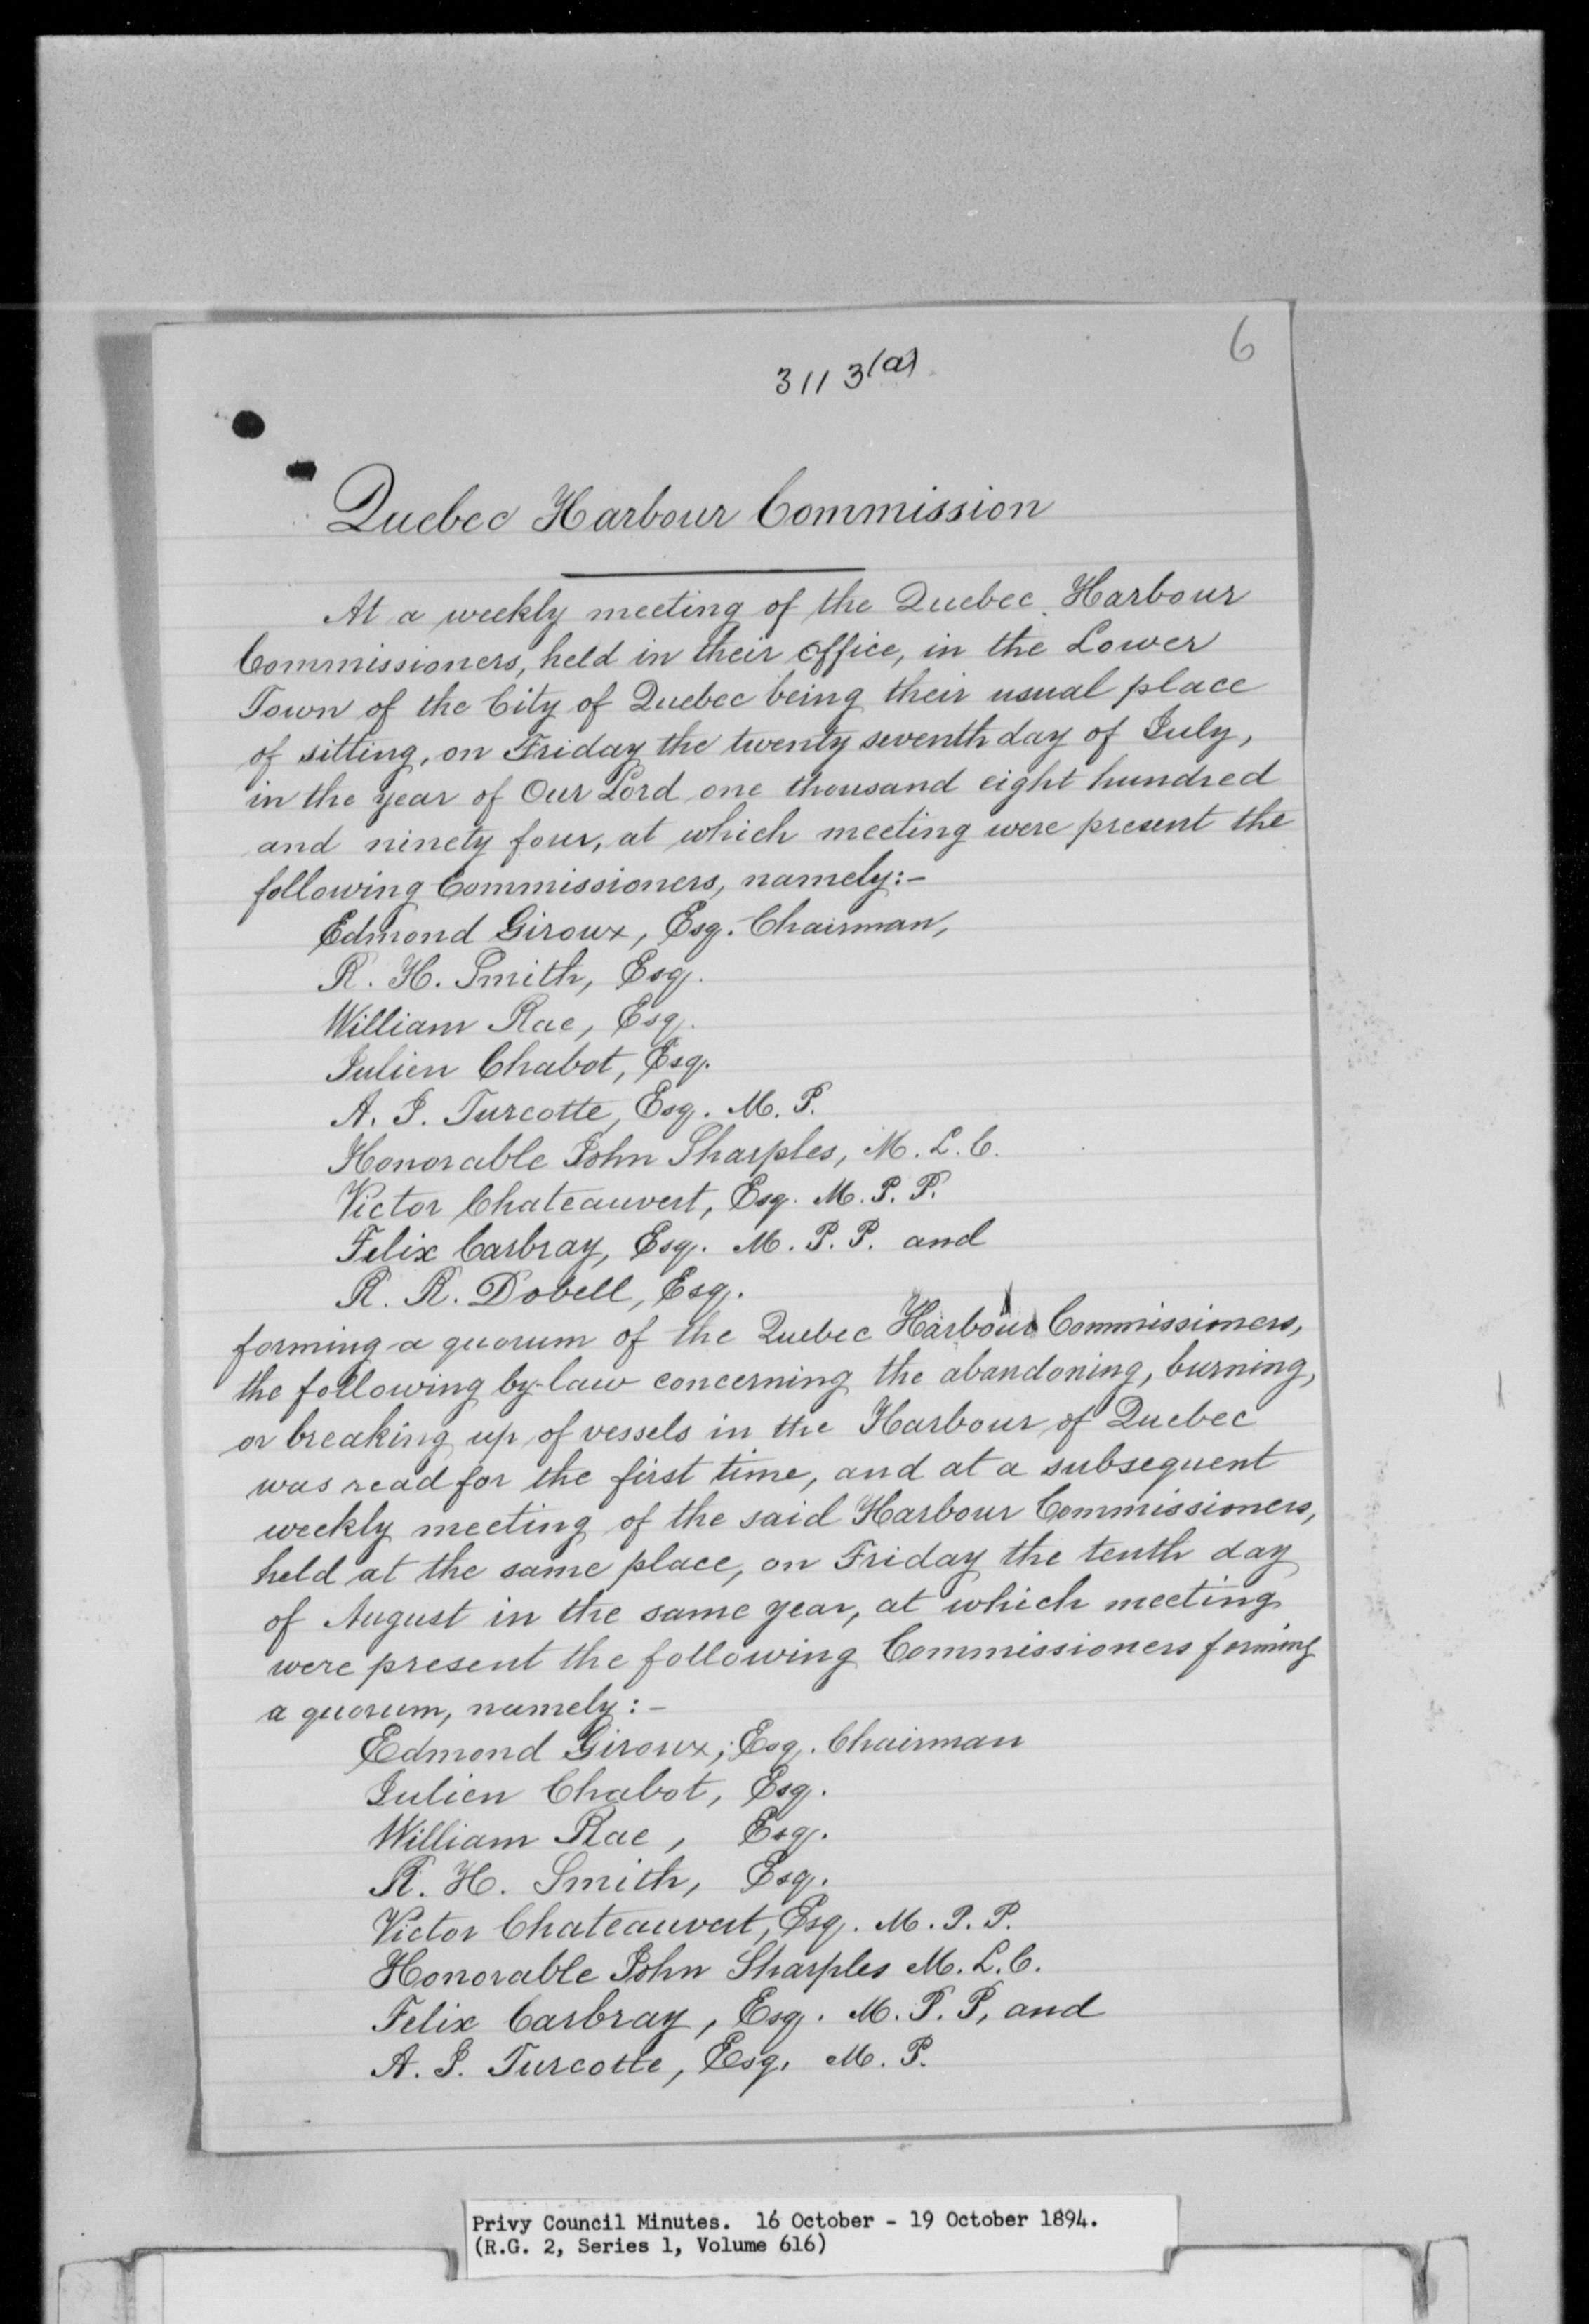 6
3113(a)
Quebec Harbour Commission
At a weekly meeting of the Quebec Harbour
Commissioners, held in their Office, in the Lower
Town of the City of Quebec being their usual place
of sitting, on Friday the twenty seventh day of July,
in the year of Our Lord one thousand eight hundred
and ninety four, at which meeting were present the
following Commissioners, namely:-
Edmond Giroux, Esq. Chairman,
R. H. Smith, Esq.
William Rae, Esq.
Julien Chabot, Esq.
A. J. Turcotte, Esq. M. P.
Honorable John Sharples, M. L. C.
Victor Chateauvert, Esq. M. P. P.
Felix Carbray, Esq. M. P. P. and
R. R. Dobell, Esq.
forming a quorum of the Quebec Harbour Commissioners,
the following by-law concerning the abandoning, burning,
or breaking up of vessels in the Harbour of Quebec
was read for the first time, and at a subsequent
weekly meeting of the said Harbour Commissioners,
held at the same place, on Friday the tenth day
of August in the same year, at which meeting
were present the following Commissioners forming
a quorum, namely:-
Edmond Giroux, Esq. Chairman
Julien Chabot, Esq.
William Rae, Esq.
R. H. Smith, Esq.
Victor Chateauvert, Esq. M. P. P.
Honorable John Sharples M. L. C.
Felix Carbray, Esq. M. P. P, and
A. J. Turcotte, Esq. M. P.
Privy Council Minutes. 16 October - 19 October 1894.
(R.G. 2, Series 1, Volume 616)